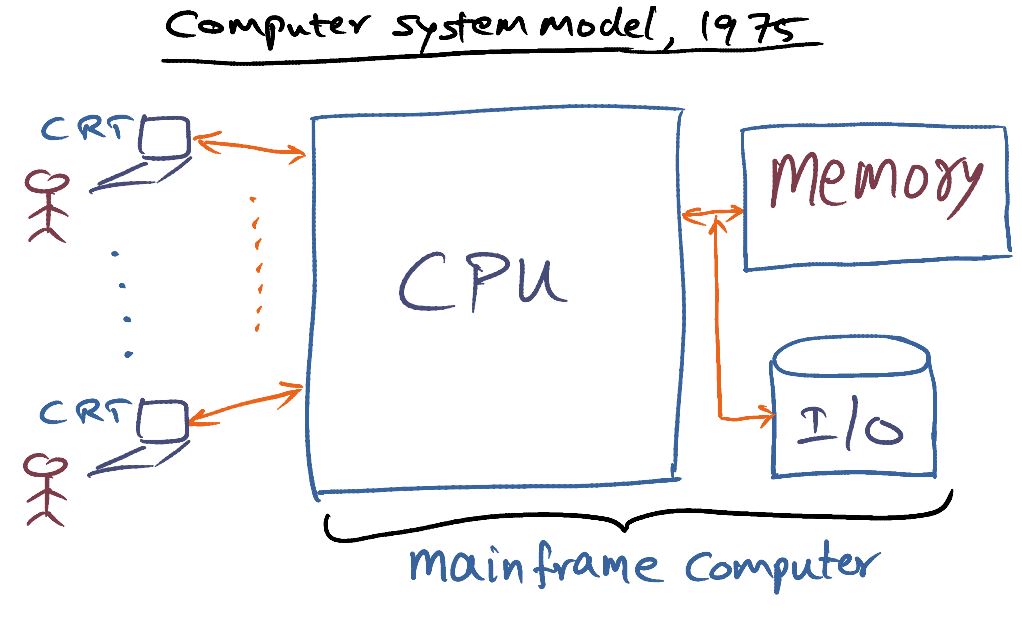 Computer system model, 1975
CRT
CPU
Memory
CRT
I/O
Mainframe Computer